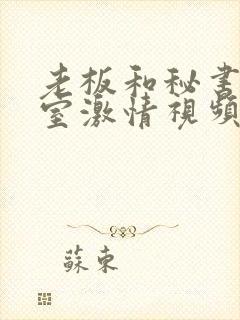 老板和秘书
室激情視頻
蘇東